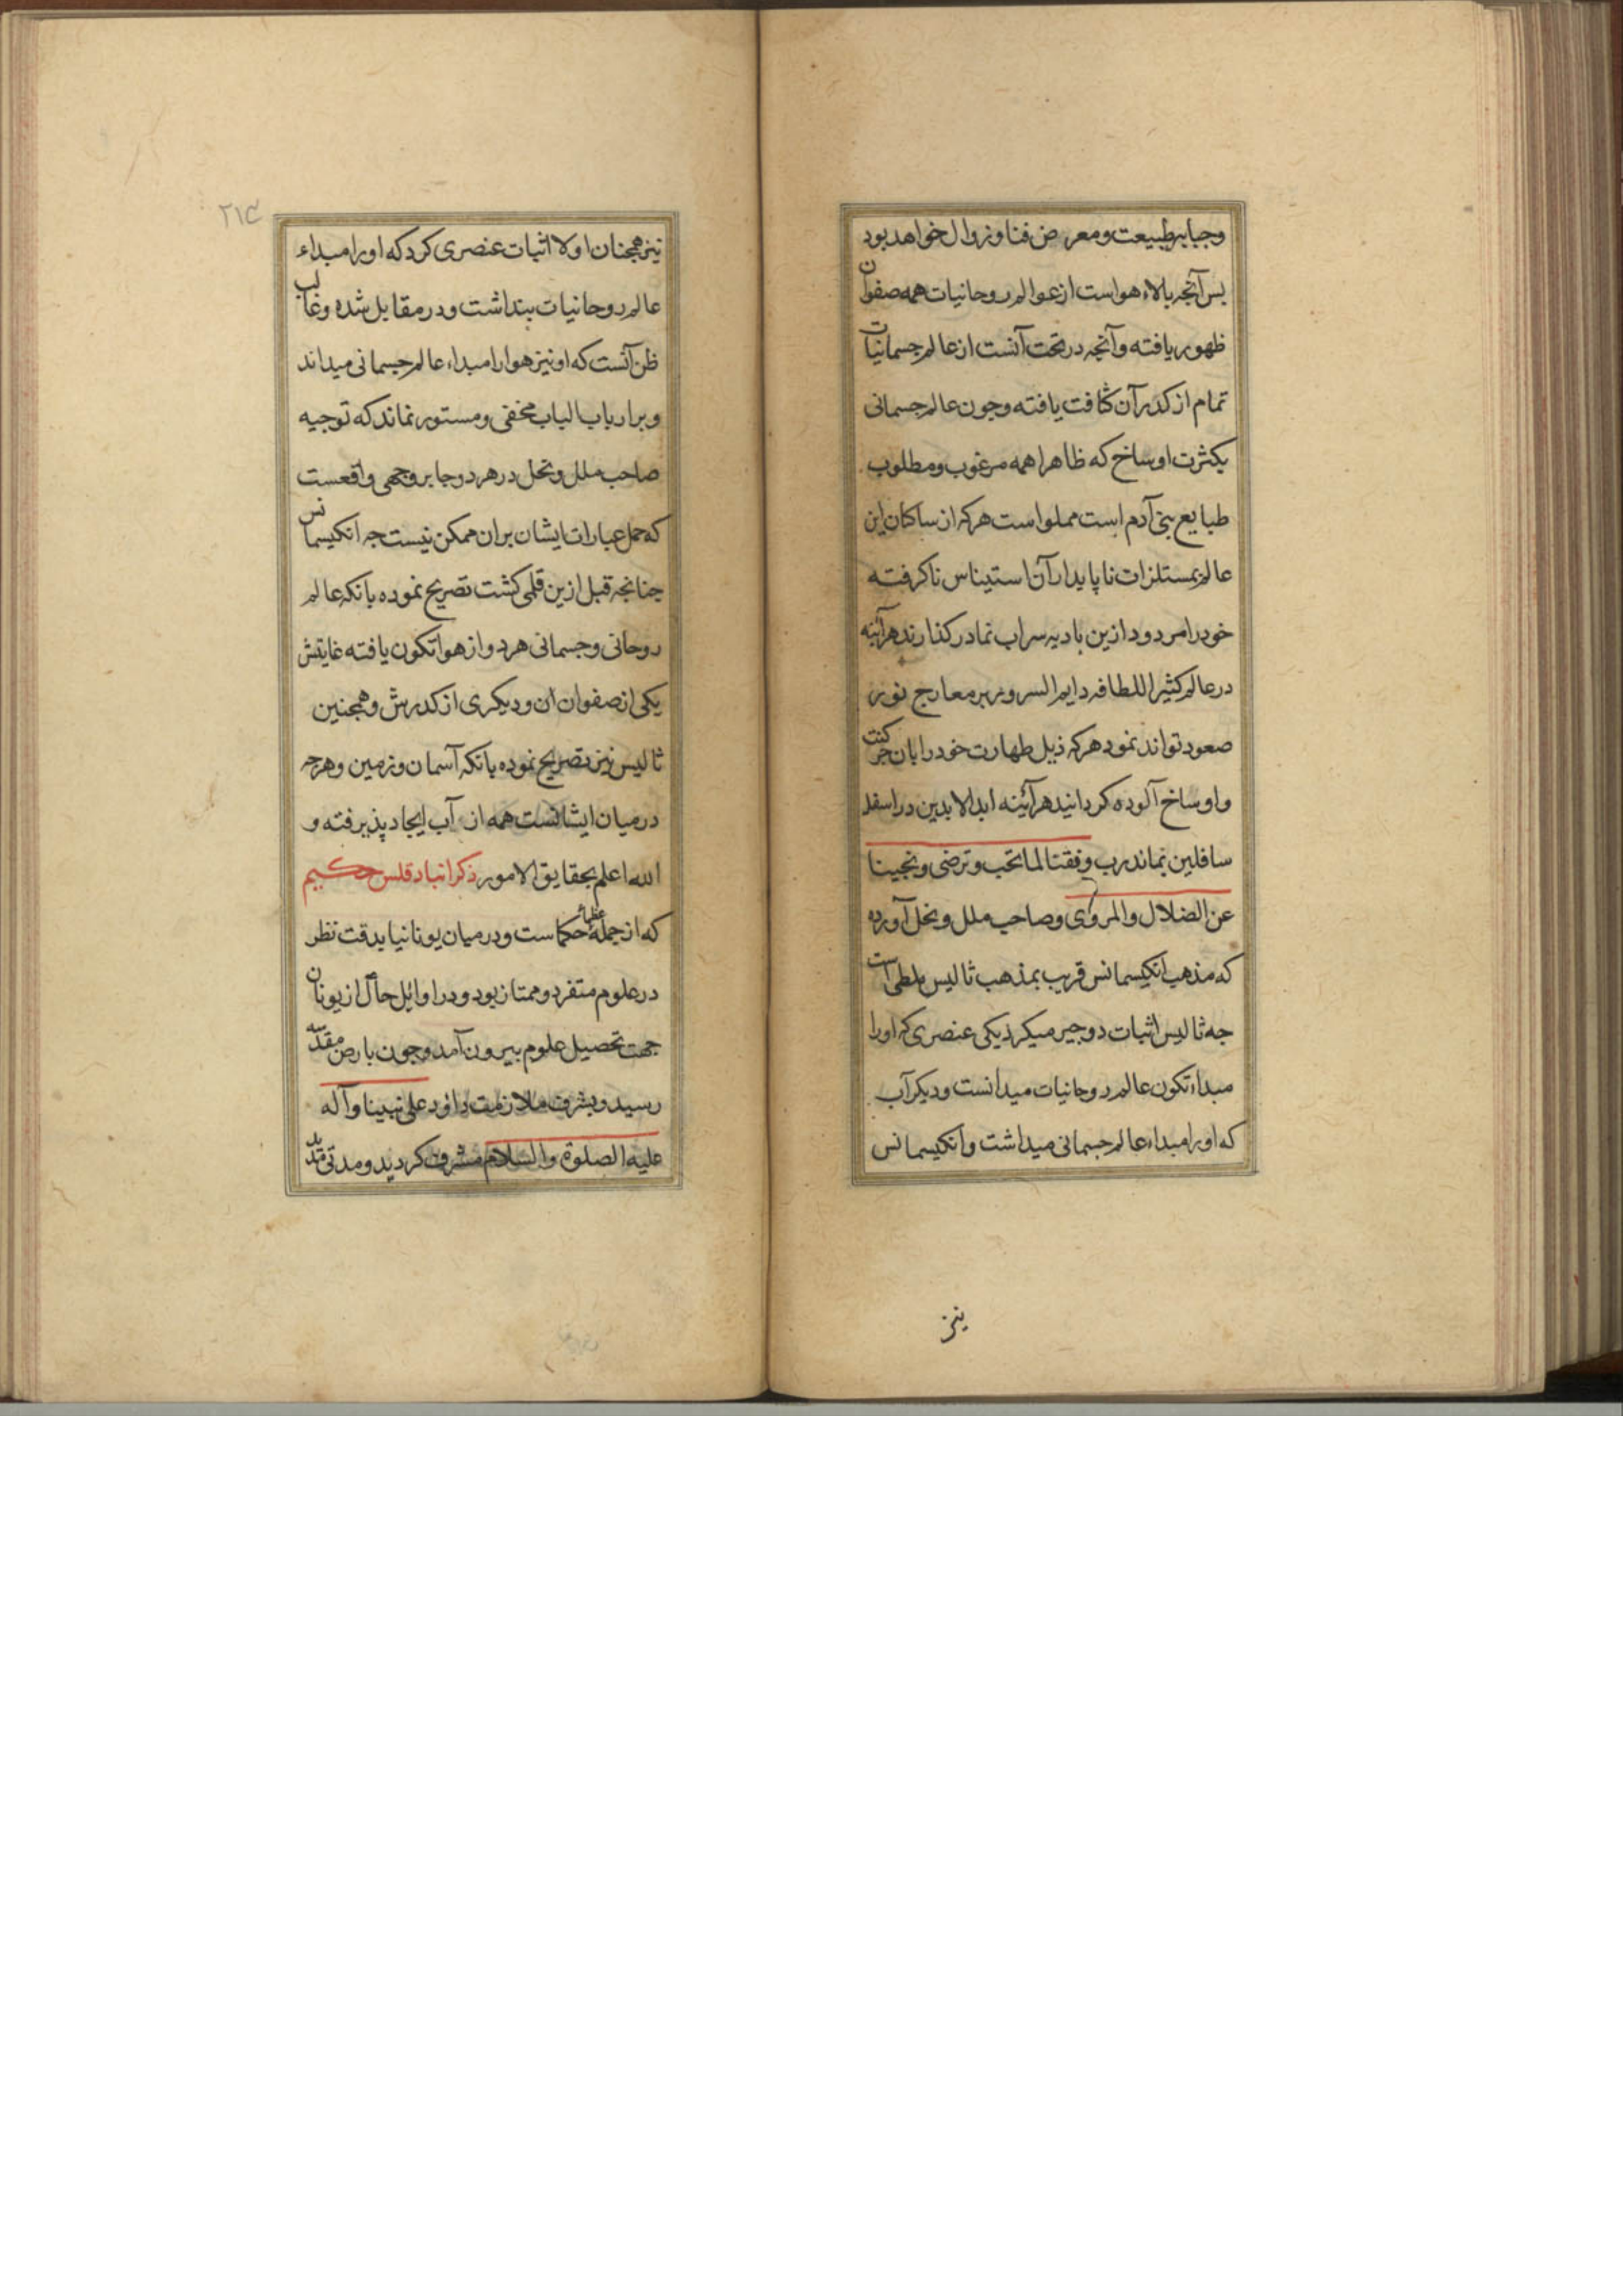 وجبابر طبیعت ومعرض فنا وزوال خواهد بود
بس آنجه بالاء هواست از عوالم روحانیات همه صفوان
ظهور یافته وآنجه در تحت آنست از عالم جسمانیات
تمام از کدر آن کثافت یافته وجون عالم جسمانی
بکثرت اوساخ که ظاهرا همه مرغوب ومطلوب
طبایع بنی آدم است مملو است هر که از ساکنان این
عالم بمستلزات نا پایدار آن استیناس ناکرفته
خود را مردود ازین بادیه سراب نما در کذارند هرآینه
در عالم کثیر اللطافه دایم السرور بر معارج نور
صعود تواند نمود هر که ذیل طهارت خود را بان
واوساخ آلوده کردانید هرآئینه ابد الابدین در اسفل
سافلین بماند رب وفقنا لما تحب وترضی ونجینا
عن الضلال والمروی وصاحب ملل ونحل آورده
که مذهب انکیسمانس قریب بمذهب ثالیس ملطی است
جه ثالیس اثبات دو جیر میکرد یکی عنصری که اورا
مبداء تکون عالم روحانیات میدانست ودیکر آب
که اورا مبداء عالم جسمانی میداشت وانکیسمانس
نیز
۲۱۴
نیز همجنان اولا اثبات عنصری کرد که اورا مبداء
عالم روحانیات بنداشت ودر مقابل شده وغالب
ظن آنست که او نیز هوا را مبداء عالم جسمانی میداند
وبر ارباب الباب مخفی ومستور نماند که توجیه
صاحب ملل ونحل در هر دو جا بر وجهی واقعست
که حمل عبارات ایشان بران ممکن نیست جه انکیسمانس
جنانجه قبل ازین قلمی کشت تصریح نموده بانکه عالم
روحانی وجسمانی هر دو از هوا تکون یافته غایتش
یکی از صفوان ان ودیکری از کدرش وهمجنین
ثالیس نیز تصریح نموده بانکه آسمان وزمین وهرجه
در میان ایشانست همه از آب ایجاد پذیرفته و
الله اعلم بحقایق الامور ذکر انبادقلس حکیم
که از جملهٔ عظماء حکماست ودر میان یونانیا بدقت نظر
در علوم متفرد وممتاز بود ودر اوائل حال از یونان
جهت تحصیل علوم بیرون آمد وجون بارض مقدسه
رسید وبشرف ملازمت داود علی نبینا وآله
علیه الصلوة والسلام مشرف کردید ومدتی مدید